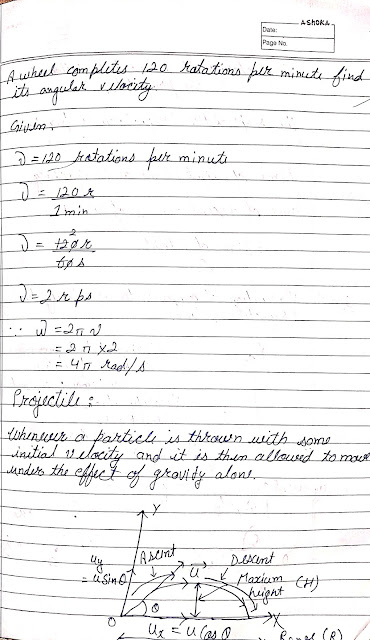 ASHOKA
Date:
Page No.
A wheel completes 120 rotations per minute find
its angular velocity.
Given:
ν = 120 rotations per minute
ν = 120 r
1 min
2
ν = 120 r
60 s
ν = 2 r ps
∵ ω = 2πν
= 2π × 2
= 4π rad/s
Projectile :
Whenever a particle is thrown with some
initial velocity and it is then allowed to move
under the effect of gravity alone.
Y
uy
= u Sin θ
Ascent
u
Descent
Maxium
height
(H)
θ
O
X
ux = u Cos θ
Range (R)